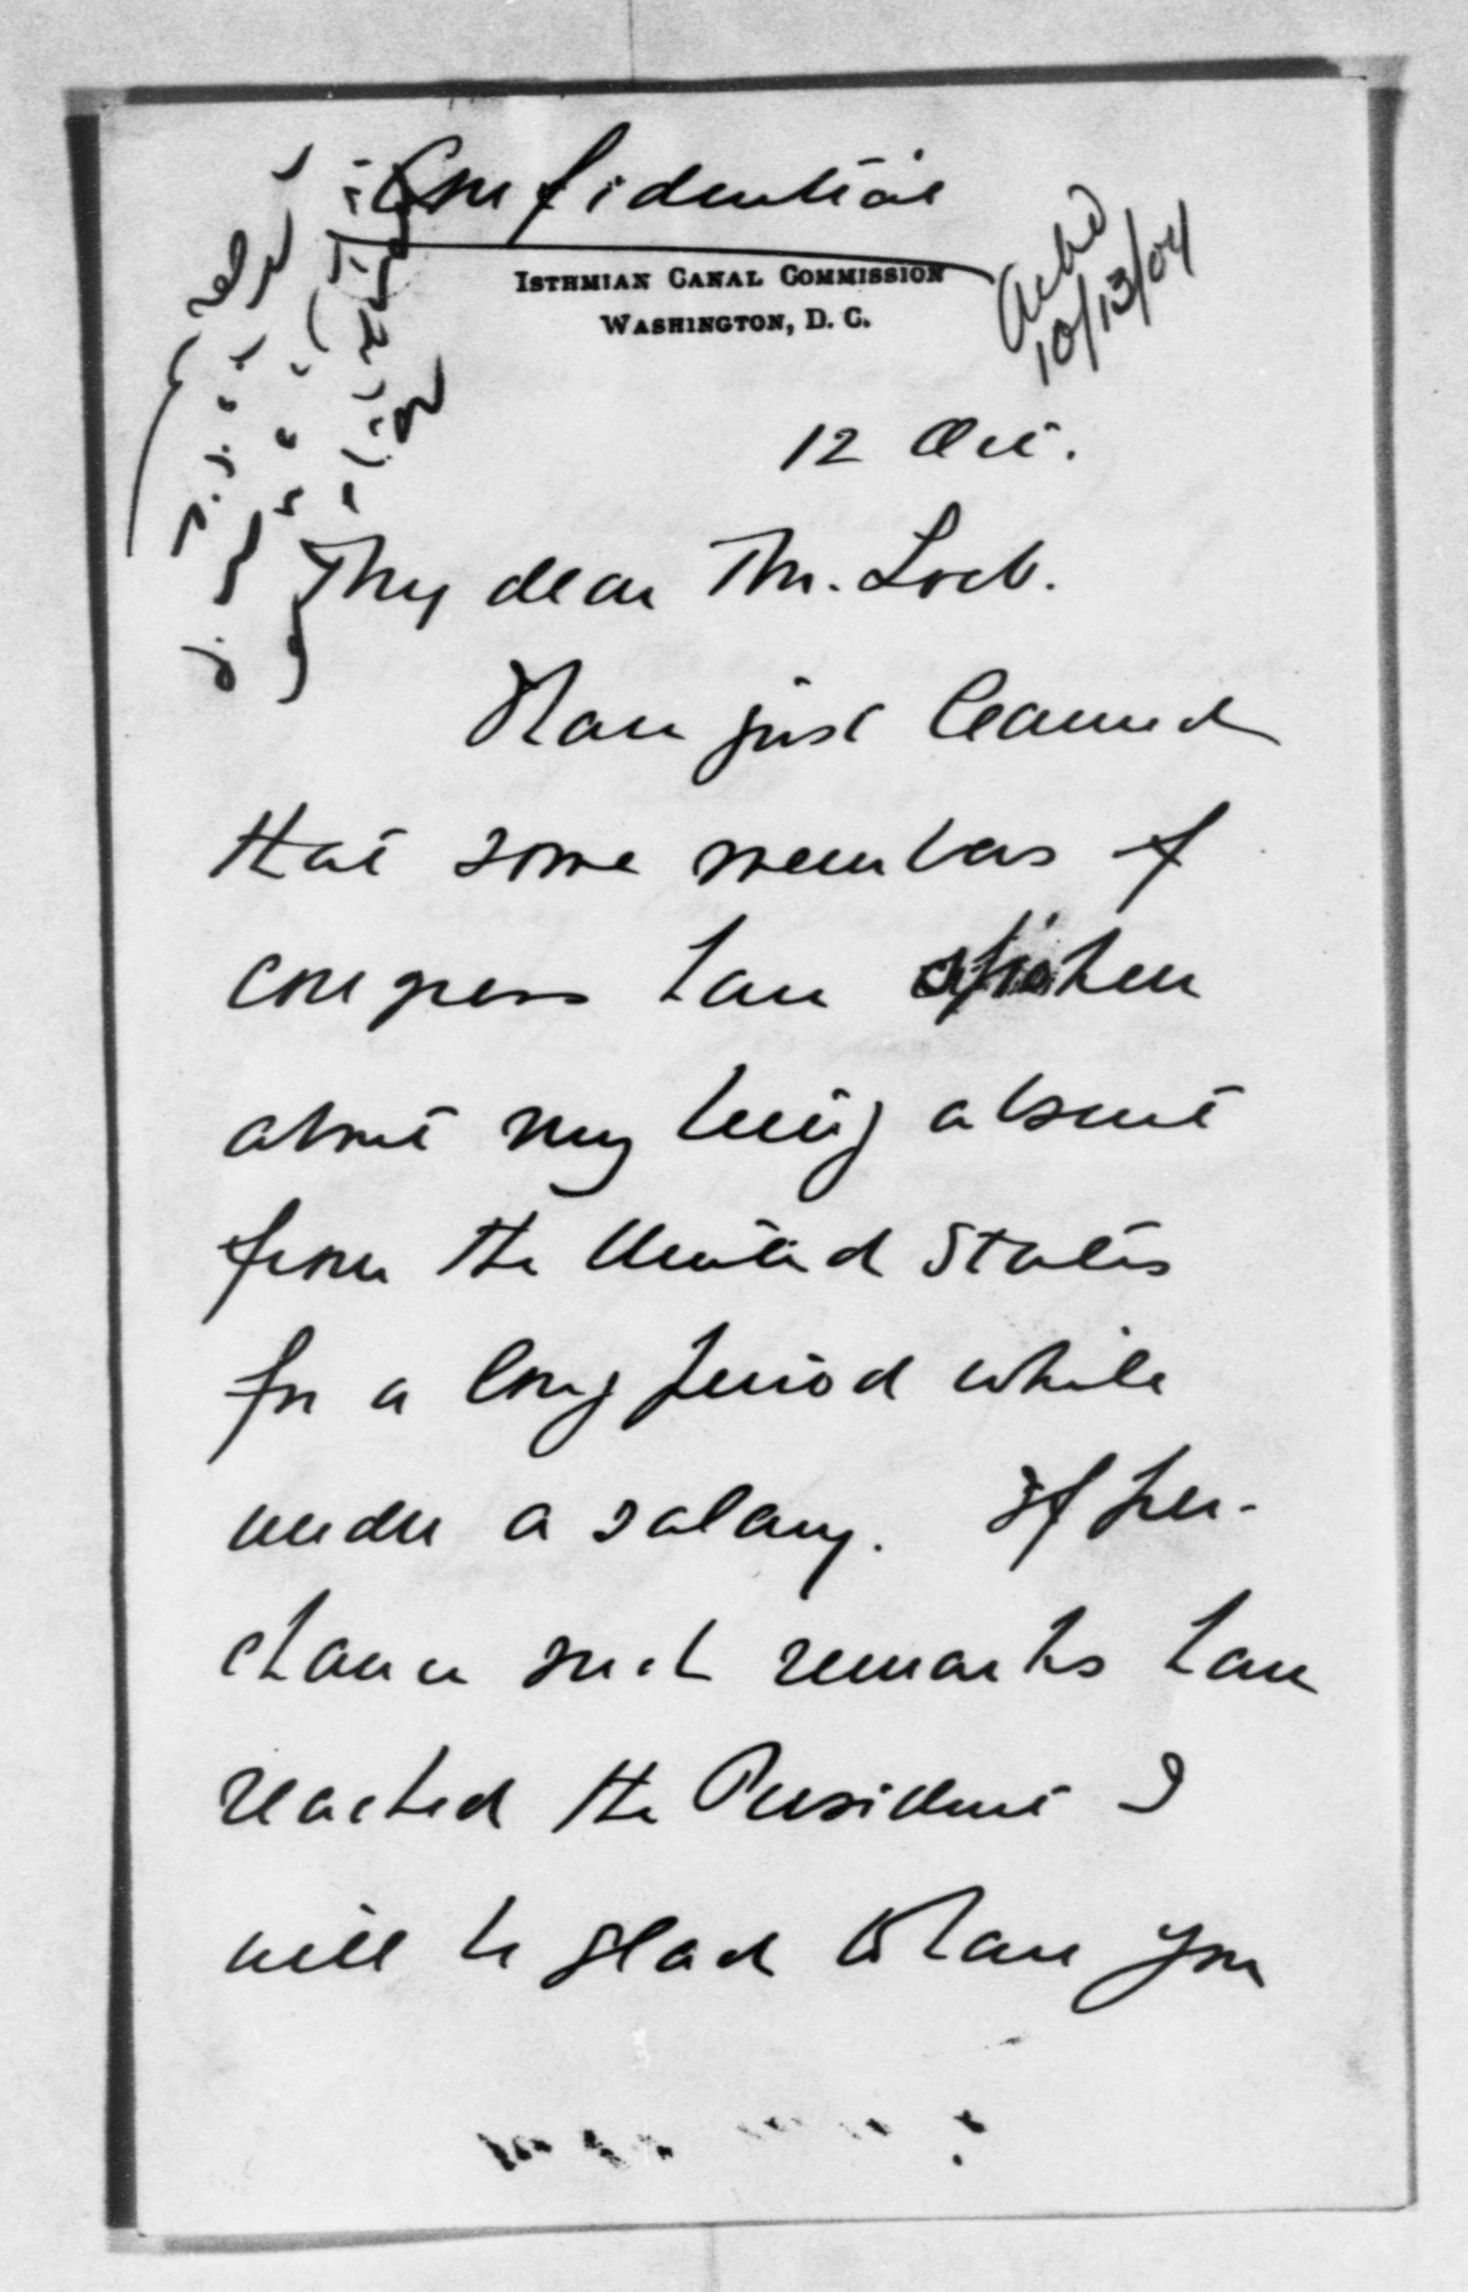 Confidential
ISTHMIAN CANAL COMMISSION
WASHINGTON, D. C.
Ackd
10/13/04
12 Oct.
My dear Mr. Loeb.
Have just learned
that some members of
congress have spoken
about my being absent
from the United States
for a long period while
under a salary. If per-
chance such remarks have
reached the President I
will be glad to have you